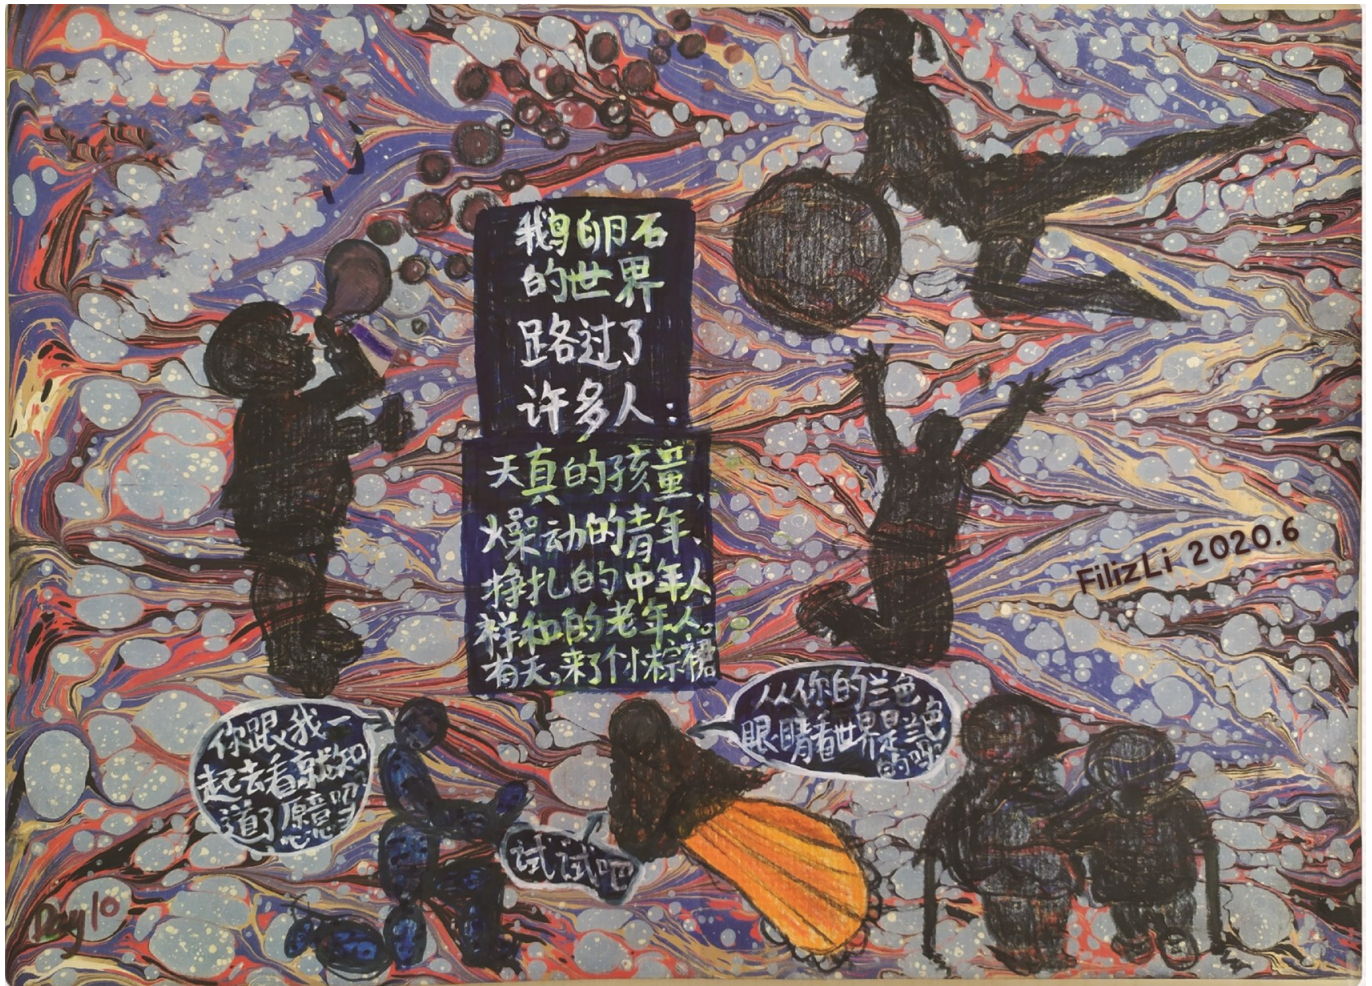 鹅卵石
的世界
路过了
许多人：
天真的孩童、
燥动的青年、
挣扎的中年人
祥和的老年人。
有天,来了个小棕裙
FilizLi 2020.6
从你的兰色
眼睛看世界是兰色
的吗?
你跟我一
起去看就知
道了 愿意吗?
试试吧
Day10